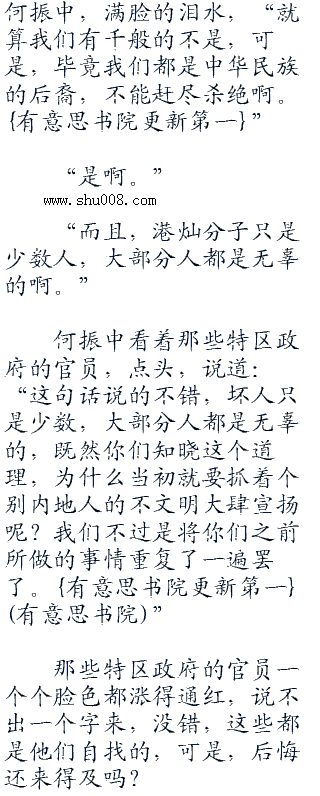 何振中，满脸的泪水，“就
算我们有千般的不是，可
是，毕竟我们都是中华民族
的后裔，不能赶尽杀绝啊。
{有意思书院更新第一}”
“是啊。”
www.shu008.com
“而且，港灿分子只是
少数人，大部分人都是无辜
的啊。”
何振中看着那些特区政
府的官员，点头，说道：
“这句话说的不错，坏人只
是少数，大部分人都是无辜
的，既然你们知晓这个道
理，为什么当初就要抓着个
别内地人的不文明大肆宣扬
呢？我们不过是将你们之前
所做的事情重复了一遍罢
了。{有意思书院更新第一}
(有意思书院)”
那些特区政府的官员一
个个脸色都涨得通红，说不
出一个字来，没错，这些都
是他们自找的，可是，后悔
还来得及吗？